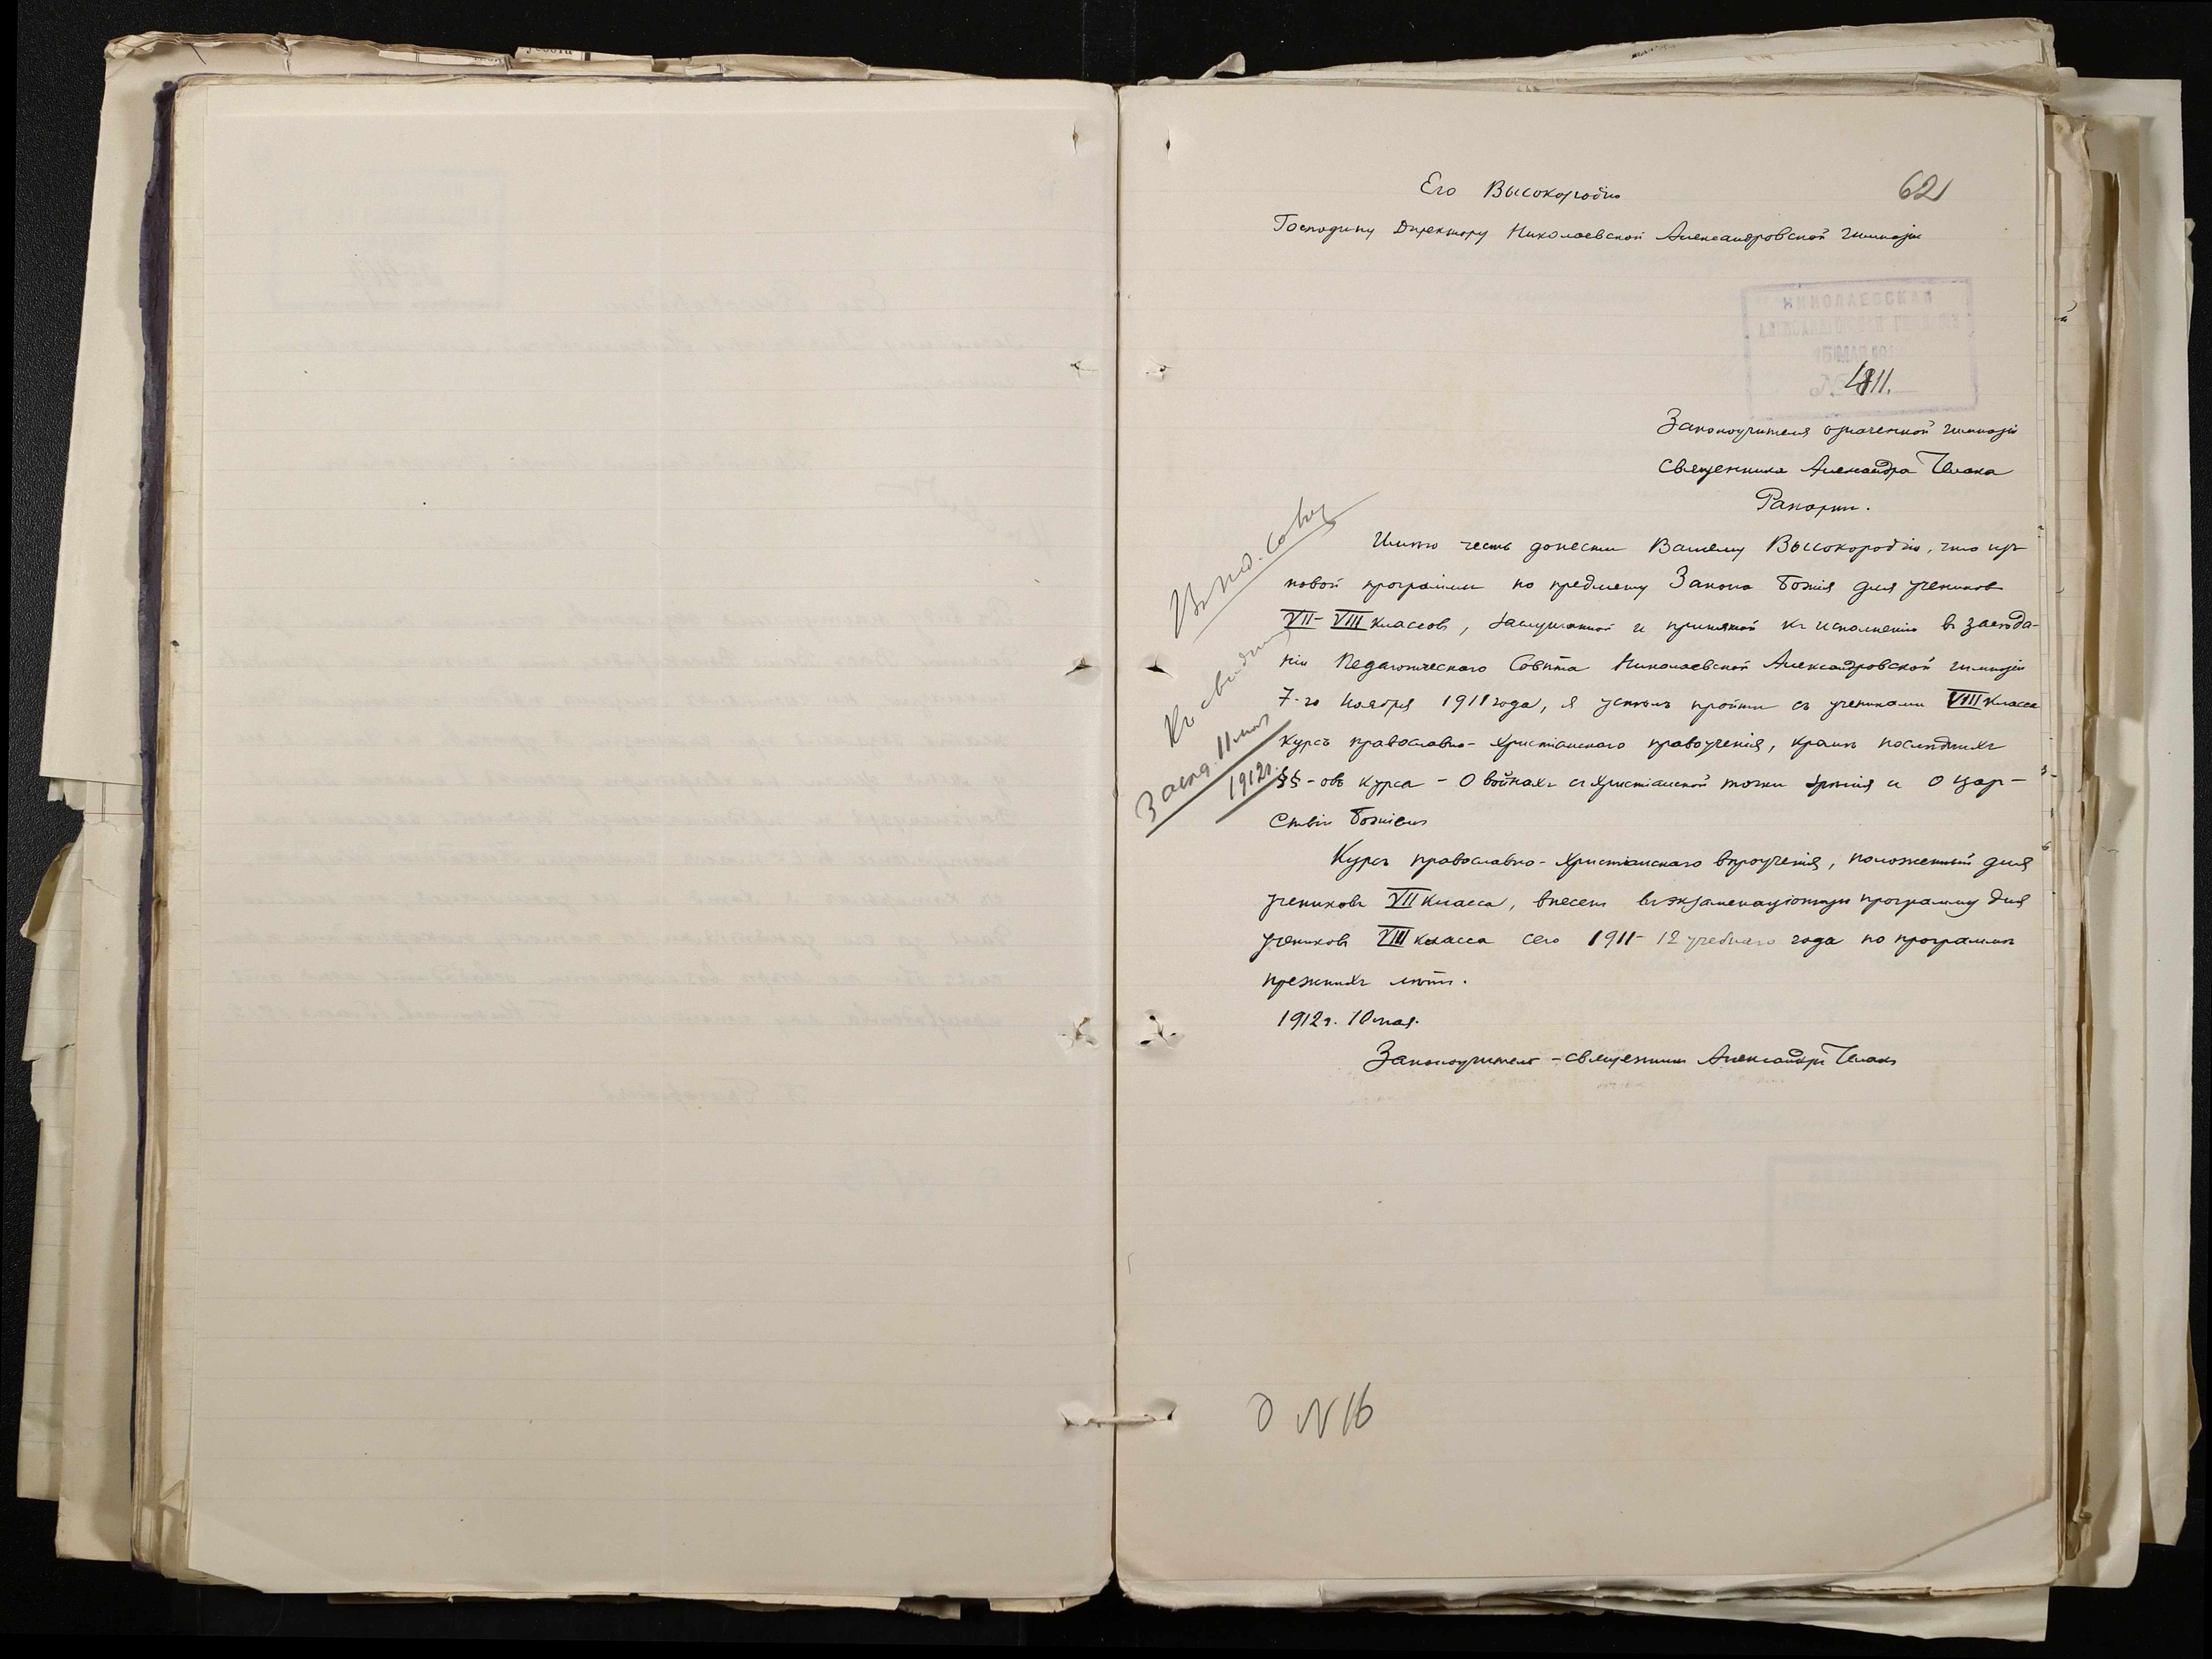 62
Его Высокородію
Господину Директору Николаевской Александровской гимназіи
НИКОЛАЕВСКАЯ
АЛЕКСАНДРОВСКАЯ ГИМНАЗІЯ
15 МАЯ 191
№ 811.
Законоучителя означенной гимназіи
Священника Александра
Рапортъ.
Имѣю честь донести Вашему Высокородію, что изъ
новой программы по предмету Закона Божія для учениковъ
VII-VIII классовъ, заслушанной и принятой къ исполненію въ засѣда-
ніи Педагогическаго Совѣта Николаевской Александровской гимназіи
7-го Ноября 1911 года, я успѣлъ пройти съ учениками VIII класса
курсъ православно-христіанскаго нравоученія, кромѣ послѣднихъ
§§-овъ курса - О войнахъ съ христіанской точки зрѣнія и О Цар-
ствіи Божіемъ
Курсъ православно-христіанскаго вѣроученія, положенный для
учениковъ VII класса, внесенъ въ экзаменаціонную программу для
учениковъ VIII класса сего 1911-12 учебнаго года по программѣ
прежнихъ лѣтъ.
1912 г. 10 мая.
Законоучитель - священникъ Александръ
Въ пед. Совѣтъ
Къ свѣдѣнію
Засѣд. 11 мая
1912 г.
N 16